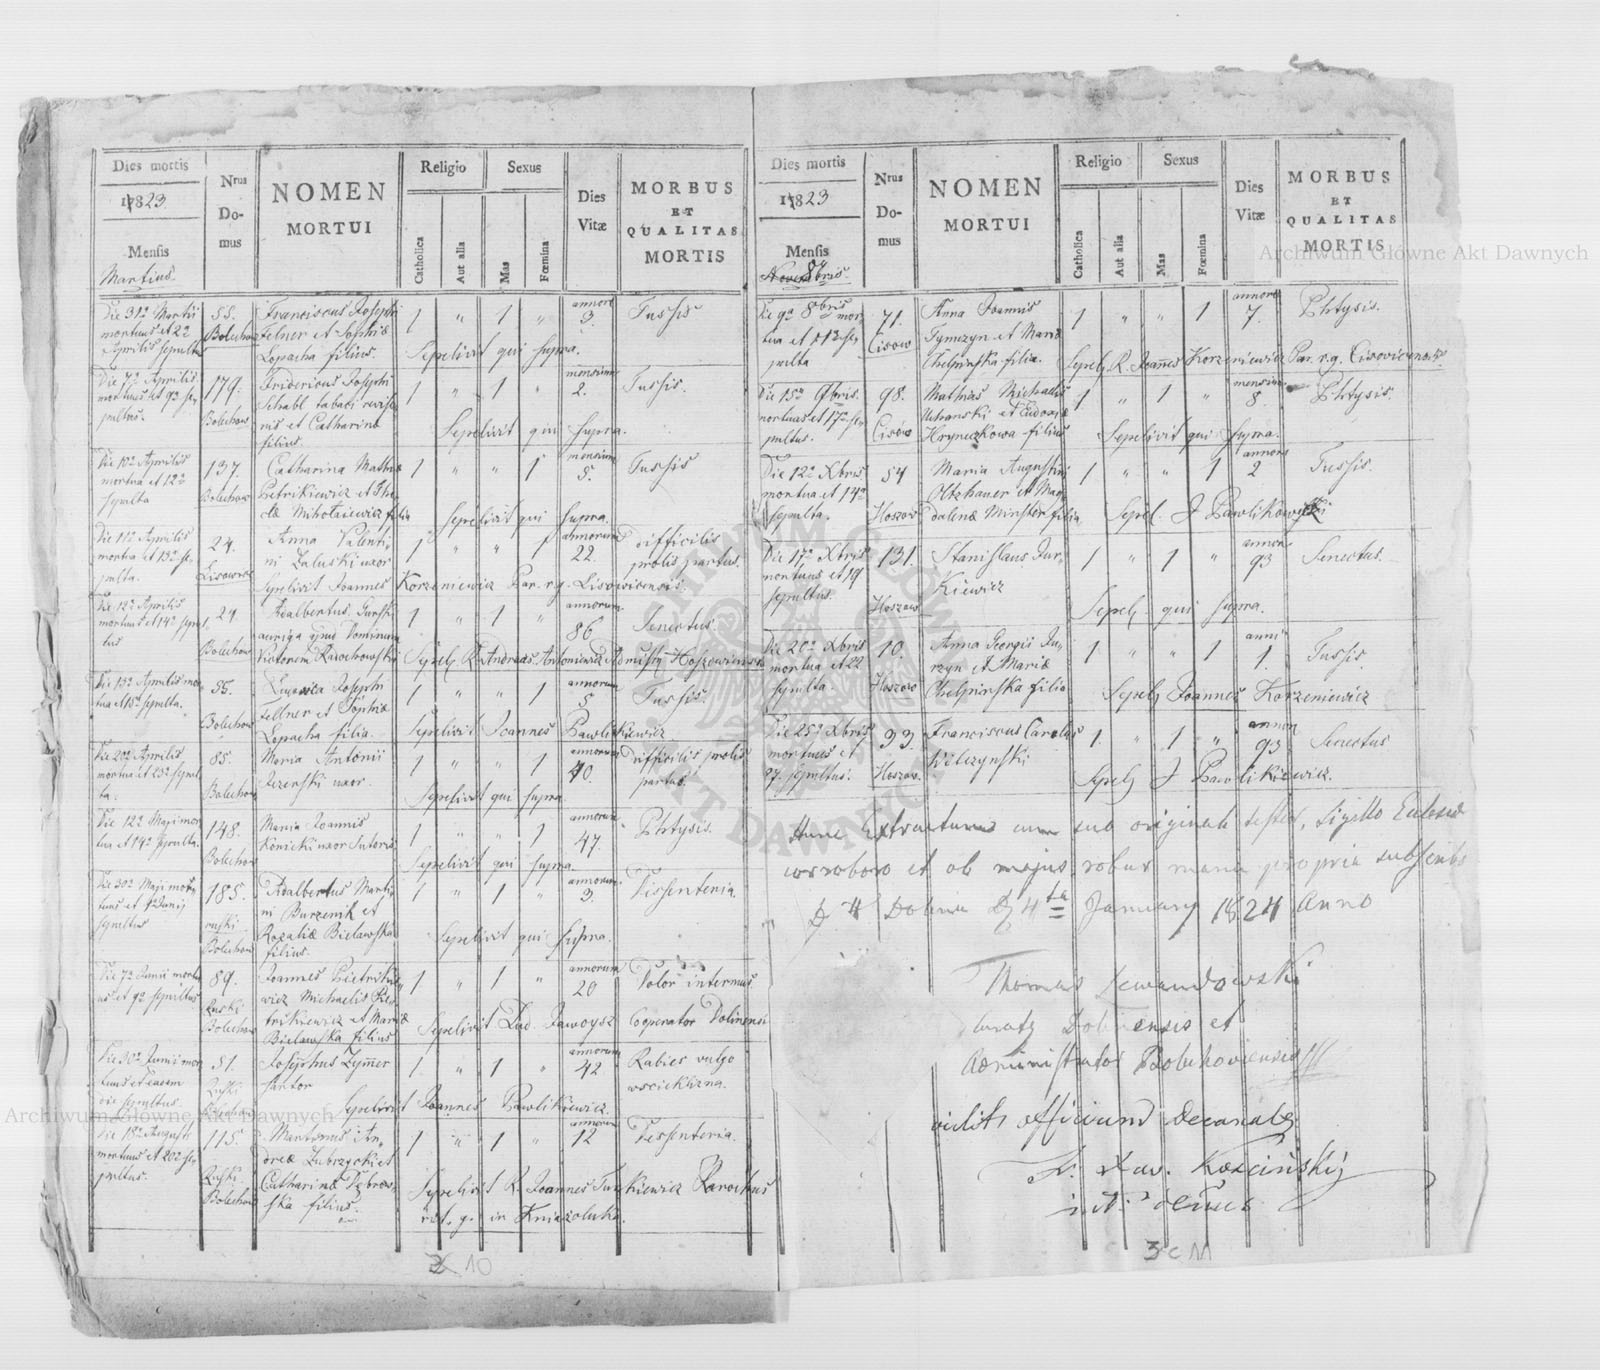 Dies mortis
1823
Mensis
Martius.
Nrus
Do-
mus
NOMEN
MORTUI
Religio
Catholica
Aut alia
Sexus
Mas
Fœmina
Dies
Vitæ
MORBUS
ET
QUALITAS
MORTIS
Die 31a Martii
mortuus et 2a
Aprilis sepultus
55.
Bolechow
Franciscus Josephi
Felner et Sophiæ
Lopacha filius.
1 " 1 "
annor.
3.
Tussis
Sepelivit qui supra.
Die 7a Aprilis
mortuus et 9a se-
pultus.
179.
Bolechow
Fridericus Josephi
Schabl tabaci reviso-
ris et Catharinæ
filius.
1 " 1 "
mensium
2.
Tussis.
Sepelivit qui supra.
Die 10a Aprilis
mortua et 12a
sepulta
137.
Bolechow
Catharina Mathiæ
Pietrikiewicz et
Mikołaiewicz filia
1 " " 1
mensium
5.
Tussis
Sepelivit qui supra.
Die 11a Aprilis
mortua et 13a se-
pulta.
24.
Anna Valenti-
ni Zaluski uxor
1 " " 1
annorum
22.
difficilis
prolis partus.
Sepelivit Joannes Korzeniewicz Par. r.g. Lisowicensis.
Die 12a Aprilis
mortuus et 14a sepul-
tus
24.
Bolechow
Adalbertus Gurski
auriga apud Dominum
Victorem
1 " 1 "
annorum
86
Senectus.
Sepel. R. Andreas Antoniewicz Admistr. Hoszowiensis
Die 13a Aprilis mor-
tua et 15a sepulta.
55.
Bolechow
Josephi
Fellner et Sophiæ
Lopacha filia.
1 " " 1
annorum
5
Tussis.
Sepelivit Joannes Pawlikiewicz.
Die 20a Aprilis
mortua et 23a sepul-
ta.
85.
Bolechow
Maria Antonii
uxor.
1 " " 1
annorum
40.
Difficilis prolis
partus.
Sepelivit qui supra
Die 12a Maji mor-
tua et 14a sepulta.
148.
Bolechow
Maria Joannis
Konicki uxor Sutoris.
1 " " 1
annorum
47.
Phtysis.
Sepelivit qui supra
Die 30a Maji mor-
tuus et 1a Junii
sepultus
185.
ruski
Bolechow
Adalbertus Marti-
ni Burzenik et
Rozaliæ Bielawska
filius.
1 " 1 "
annorum.
3.
Dissenteria
Sepelivit qui supra.
Die 7a Junii mortu-
us et 9a sepultus
89.
Ruski
Bolechow
Joannes Pietrikie-
wicz Michaelis Pie-
trikiewicz et Mariæ
Bielawska filius
1 " 1 "
annorum
20
Dolor internus.
Sepelivit Lad. Jawoysz Cooperator Dolinensis
Die 30a Junii mor-
tuus et eadem
die sepultus.
51.
Ruski
Bolechow
Josephus Zymmer
sartor
1 " 1 "
annorum
42
Rabies vulgo
wscieklizna.
Sepelivit Joannes Pawlikiewicz.
Die 18a Augusti
mortuus et 20a se-
pultus.
115.
Ruski
Bolechow
Martinus An-
dreæ Zubrzycki et
Catharinæ Dębrow-
ska filius.
1 " 1 "
annorum
12
Dissenteria.
Sepelivit R. Joannes Turkiewicz Parochus
rit. g. in Kniazoluka.
10
Dies mortis
1823
Mensis
8bris.
Nrus
Do-
mus
NOMEN
MORTUI
Religio
Catholica
Aut alia
Sexus
Mas
Fœmina
Dies
Vitæ
MORBUS
ET
QUALITAS
MORTIS
Die 9a 8bris mor-
tua et 13 se-
pulta
71.
Cisow
Anna Joannis
Tymczyn et Mariæ
Chelpinska filia.
1 " " 1
annor.
7.
Phtysis.
Sepel. R. Joannes Korzeniewicz Par. r.g. Cisovicensis
Die 15a 9bris.
mortuus et 17a se-
pultus.
98.
Cisów
Mathias Michaelis
Uchanski et Eudoxiæ
Hryneczkowa filius
1 " 1 "
mensium
8.
Phtysis.
Sepelivit qui supra.
Die 12a Xbris
mortua et 14a
sepulta.
54
Hoszow
Maria Augustini
Oltzhauer et Mag-
dalenæ Minster filia
1 " " 1
annor.
2
Tussis.
Sepel. J Pawlikowski
Die 17a Xbris
mortuus et 19
sepultus.
131.
Hoszow
Stanislaus Jur-
kiewicz
1 " 1 "
annor.
93
Senectus.
Sepel. qui supra.
Die 20a Xbris
mortua et 22
sepulta.
10.
Hoszow
Anna Georgii Ju-
rzyn et Mariæ
Chelpinska filia
1 " " 1
anni
1.
Tussis.
Sepel. Joannes Korzeniewicz
Die 25a Xbris
mortuus et
27. sepultus.
33.
Hoszow.
Franciscus Carolus
Wilczynski
1. " 1 "
annor.
93
Senectus
Sepel. J Pawlikiewicz.
Hunc Extractum cum suo originali testor, Sigillo Ecclesiæ
corroboro et ob majus robur manu propria subscribo
Dolina D 4ta January 1824 Anno
Thomas Lewandowski
Curatus Dolinensis et
Administrator Bolechoviensis
vidit officium Decanale
X. Xav. Kosciński
3 c 11
Archiwum Główne Akt Dawnych
Archiwum Główne Akt Dawnych
ARCHIWUM GŁÓWNE
AKT DAWNYCH